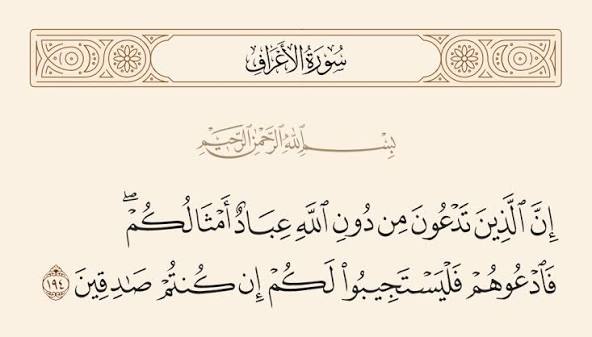 سُورَةُ الأَعْرَافِ
بِسْمِ ٱللَّهِ ٱلرَّحْمَٰنِ ٱلرَّحِيمِ
إِنَّ ٱلَّذِينَ تَدْعُونَ مِن دُونِ ٱللَّهِ عِبَادٌ أَمْثَالُكُمْ ۖ
فَٱدْعُوهُمْ فَلْيَسْتَجِيبُوا۟ لَكُمْ إِن كُنتُمْ صَٰدِقِينَ ١٩٤